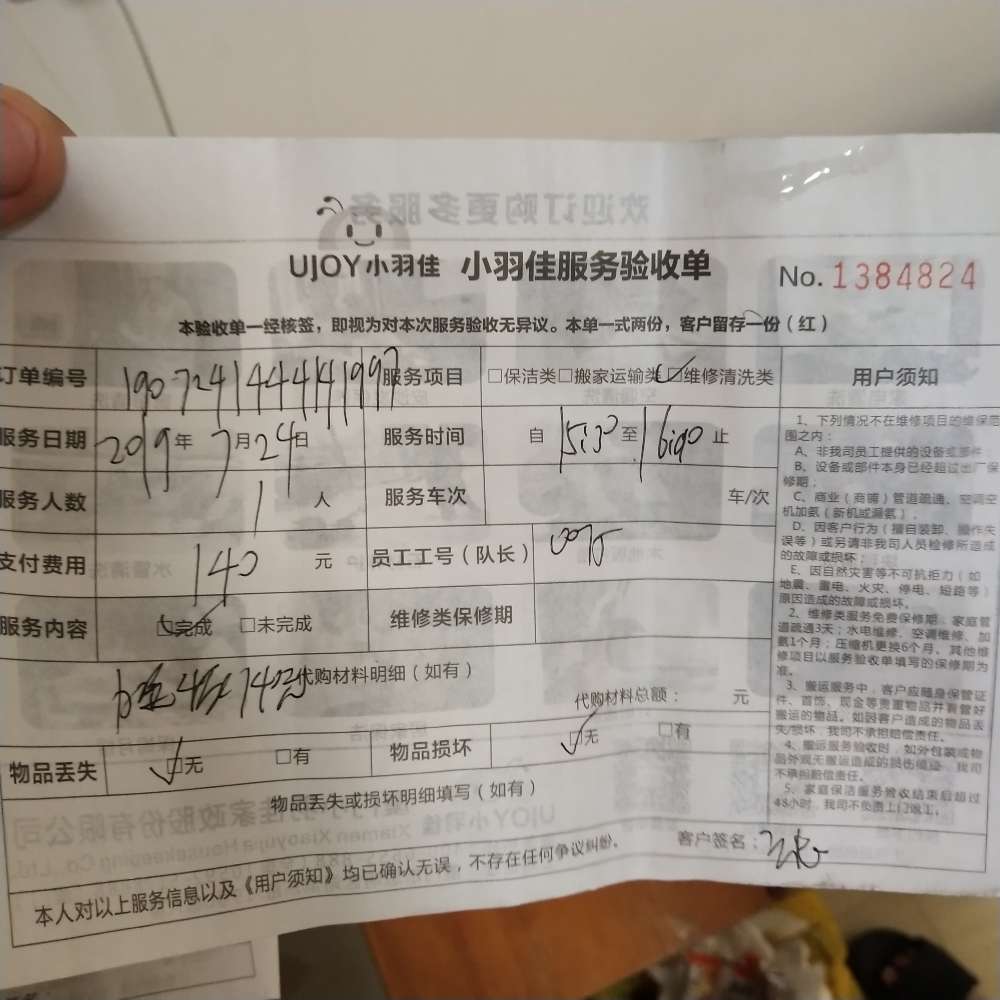 欢迎订购更多服务
UJOY小羽佳 小羽佳服务验收单 No.1384824
本验收单一经核签，即视为对本次服务验收无异议。本单一式两份，客户留存一份（红）
订单编号 服务项目 □保洁类□搬家运输类☑维修清洗类 用户须知
服务日期 2019年7月24日 服务时间 自15:30至 止
服务人数 1人 服务车次 车/次
支付费用 140元 员工工号（队长）
服务内容 ☑完成 □未完成 维修类保修期
代购材料明细（如有）
代购材料总额： 元
物品丢失 ☑无 □有 物品损坏 ☑无 □有
物品丢失或损坏明细填写（如有）
客户签名：
本人对以上服务信息以及《用户须知》均已确认无误，不存在任何争议纠纷。
1、下列情况不在维修项目的维保范
围之内：
A、非我司员工提供的设备或部件；
B、设备或部件本身已经超过出厂保
修期；
C、商业（商铺）管道疏通、空调空
机加氨（新机或漏氨）；
D、因客户行为（擅自装卸、操作失
误等）或另请非我司人员检修所造成
的故障或损坏；
E、因自然灾害等不可抗拒力（如
地震、雷电、火灾、停电、短路等）
原因造成的故障或损坏。
2、维修类服务免费保修期：家庭管
道疏通3天；水电维修、空调维修、加
氨1个月；压缩机更换6个月。其他维
修项目以服务验收单填写的保修期为
准。
3、搬运服务中，客户应随身保管证
件、首饰、现金等贵重物品并看管好
搬运的物品。如因客户造成的物品丢
失/损坏，我司不承担赔偿责任。
4、搬运服务验收时，如外包装或物
品外观无搬运造成的损伤痕迹，我司
不承担赔偿责任。
5、家庭保洁服务验收结束后超过
48小时，我司不负责上门返工。